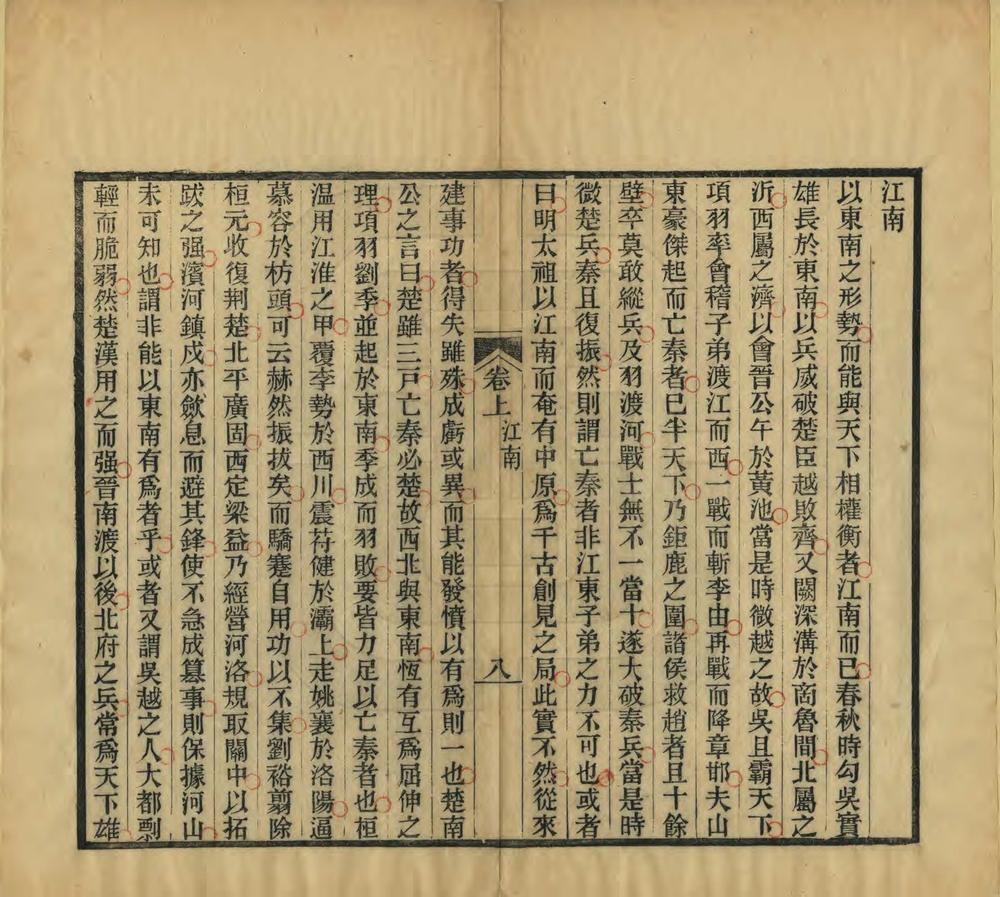 江南
以東南之形勢而能與天下相權衡者江南而已春秋時勾吳實
雄長於東南以兵威破楚臣越敗齊又闕深溝於商魯間北屬之
沂西屬之濟以會晉公午於黃池當是時微越之故吳且霸天下
項羽率會稽子弟渡江而西一戰而斬李由再戰而降章邯夫山
東豪傑起而亡秦者已半天下乃鉅鹿之圍諸侯救趙者且十餘
壁卒莫敢縱兵及羽渡河戰士無不一當十遂大破秦兵當是時
微楚兵秦且復振然則謂亡秦者非江東子弟之力不可也或者
曰明太祖以江南而奄有中原爲千古創見之局此實不然從來
卷上 江南 八
建事功者得失雖殊成虧或異而其能發憤以有爲則一也楚南
公之言曰楚雖三戸亡秦必楚故西北與東南恆有互爲屈伸之
理項羽劉季並起於東南季成而羽敗要皆力足以亡秦者也桓
溫用江淮之甲覆李勢於西川震苻健於灞上走姚襄於洛陽逼
慕容於枋頭可云赫然振拔矣而驕蹇自用功以不集劉裕翦除
桓元收復荆楚北平廣固西定梁益乃經營河洛規取關中以拓
跋之强濱河鎮戍亦斂息而避其鋒使不急成篡事則保據河山
未可知也謂非能以東南有爲者乎或者又謂吳越之人大都剽
輕而脆弱然楚漢用之而强晉南渡以後北府之兵常爲天下雄